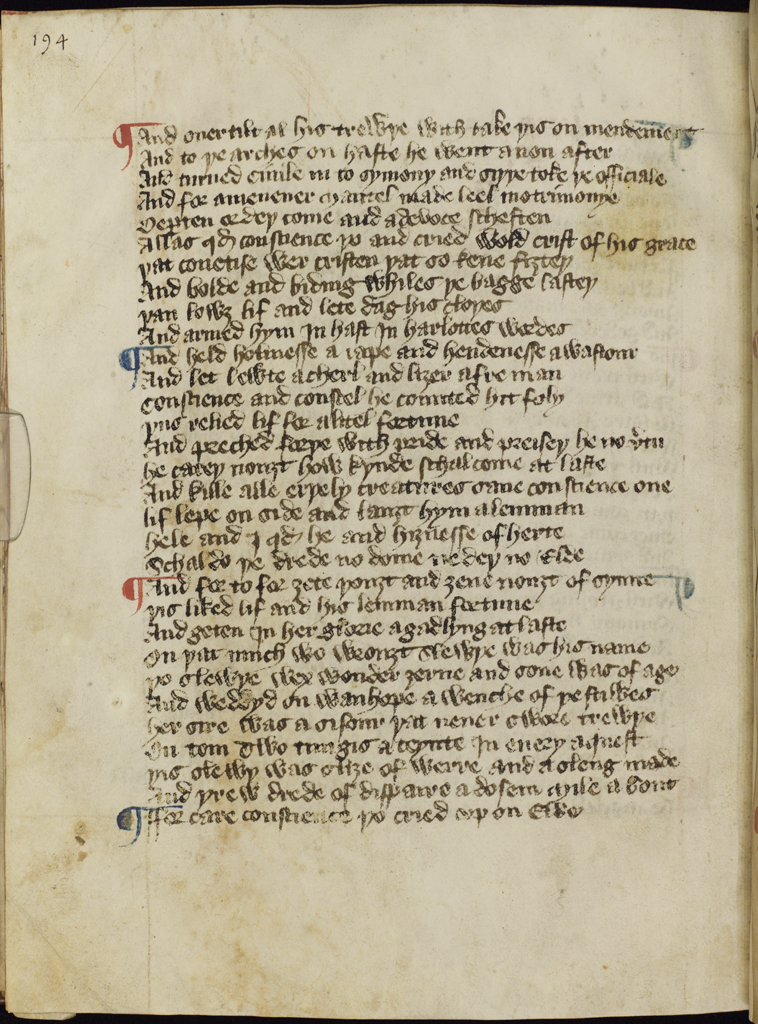 194
And ouer tilt al his trewþe with take þis on mendement
And to þe arches on haste he went anon after
And turned ciuile in to symony and siþþe toke þe officiale
And for amenener mantel made leel motrimonye
Departen or dey come and a deuoce scheften
Allas qđ conscience þo and cried wold crist of his grace
þat coueitise wer cristen þat so kene fiȝtey
And bolde and biding whiles þe bagge lastey
þan lowȝ lif and lete dag his cloþes
And armed hym In hast In harlottes wordes
And held holinesse a iape and hendenesse a wastour
And let lewte a cherl and liȝer a fre man
Conscience and consel he counted hit foly
þus relied lif for a litel fortune
And preched forþe with pride and preisey he no vtu
he carey nouȝt how kynde schal come at laste
And kille alle erþely creatures saue conscience one
lif lepe on side and lauȝt hym a lemman
hele and I qđ he and hiȝnesse of herte
Schal do þe drede no dome ne dey no Elde
And for to for ȝete ȝouȝt and ȝeue nouȝt of synne
þis liked lif and his lemman fortune
And geten In her glorie a gadlyng at laste
On þat much wo wrouȝt slewþe was his name
þo slewþe wex wonder ȝerne and sone was of age
And weddyd on wanhope a wenche of þe stiwes
her sire was a sisour þat neuer swore trewþe
On tom two tungis ateynte In euery a quest
þis slewþ was sliȝe of werre and a sleng made
And þrew drede of dispaire a dosein myle a bout
For care conscience þo cried vp on Elde